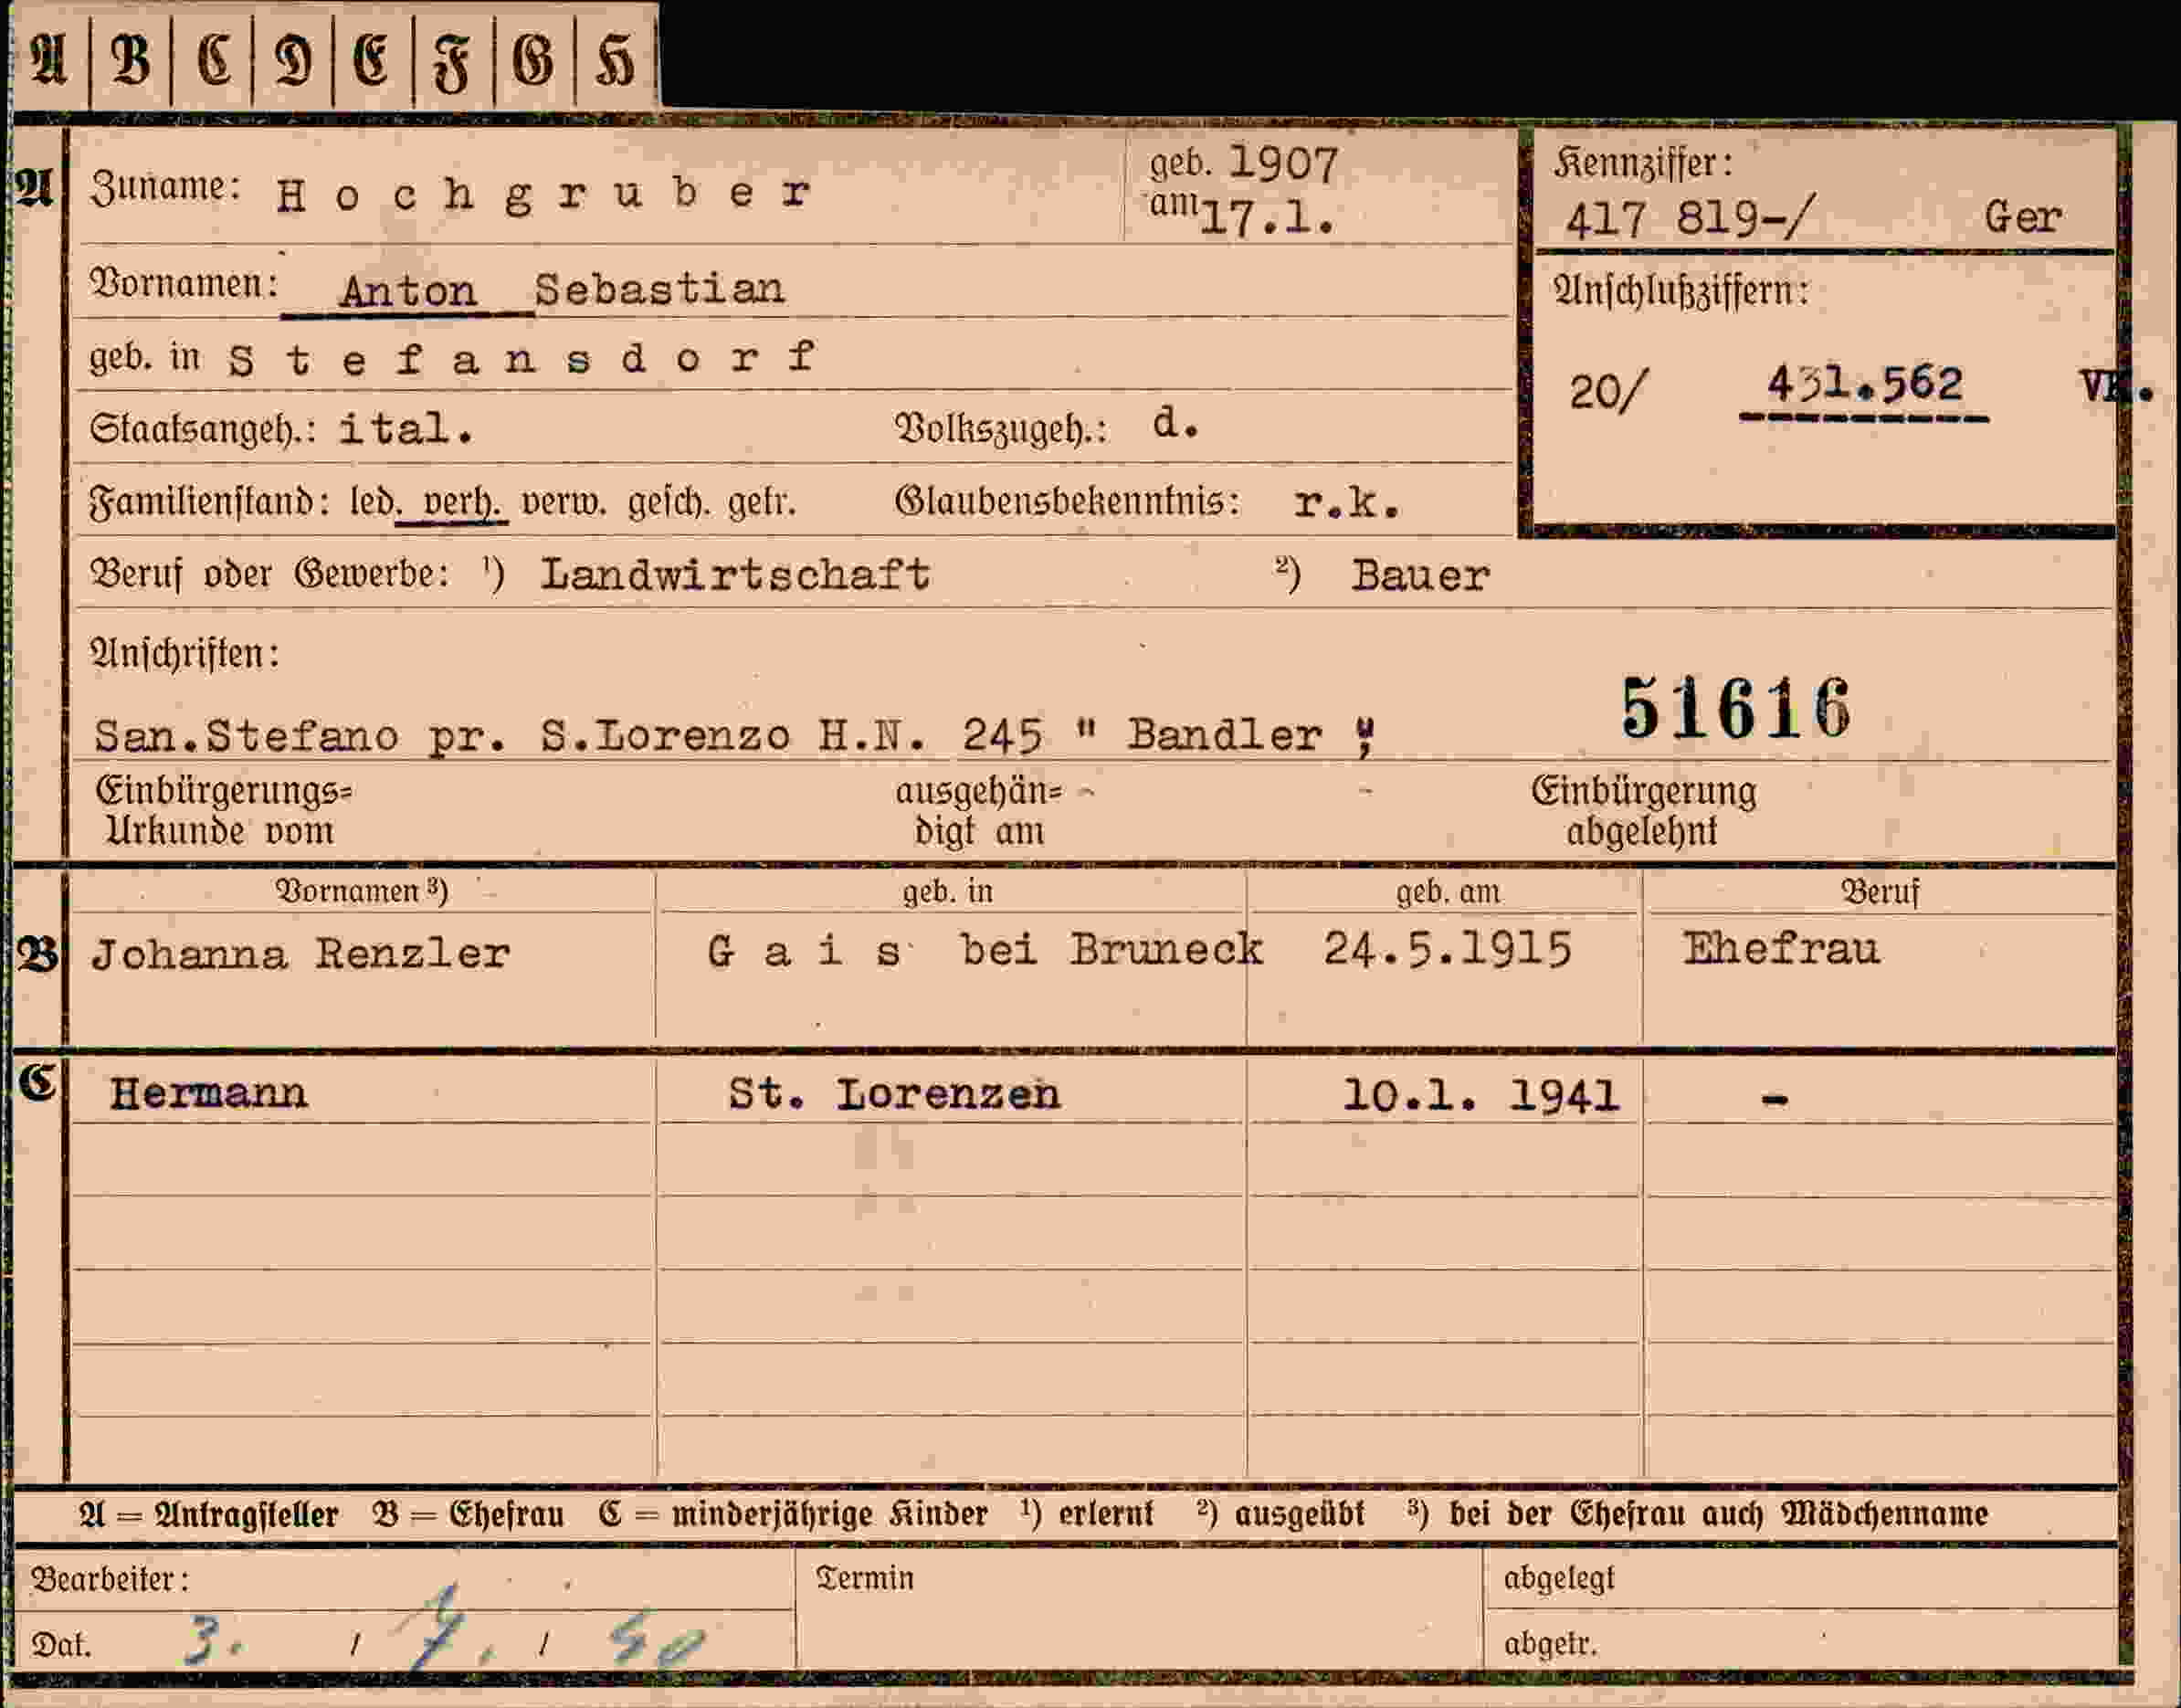 A B C D E F G H
A Zuname: Hochgruber geb. 1907 am 17.1.
Kennziffer:
417 819-/ Ger
Vornamen: Anton Sebastian
Anschlußziffern:
geb. in Stefansdorf
20/ 431.562 VK.
Staatsangeh.: ital. Volkszugeh.: d.
Familienstand: led. verh. verw. gesch. getr. Glaubensbekenntnis: r.k.
Beruf oder Gewerbe: ¹) Landwirtschaft ²) Bauer
Anschriften:
51616
San.Stefano pr. S.Lorenzo H.N. 245 " Bandler ";
Einbürgerungs= ausgehän= Einbürgerung
Urkunde vom digt am abgelehnt
Vornamen ³) geb. in geb. am Beruf
B Johanna Renzler Gais bei Bruneck 24.5.1915 Ehefrau
C Hermann St. Lorenzen 10.1. 1941 -
A = Antragsteller B = Ehefrau C = minderjährige Kinder ¹) erlernt ²) ausgeübt ³) bei der Ehefrau auch Mädchenname
Bearbeiter: Termin abgelegt
Dat. 3. / 7. / 40 abgetr.